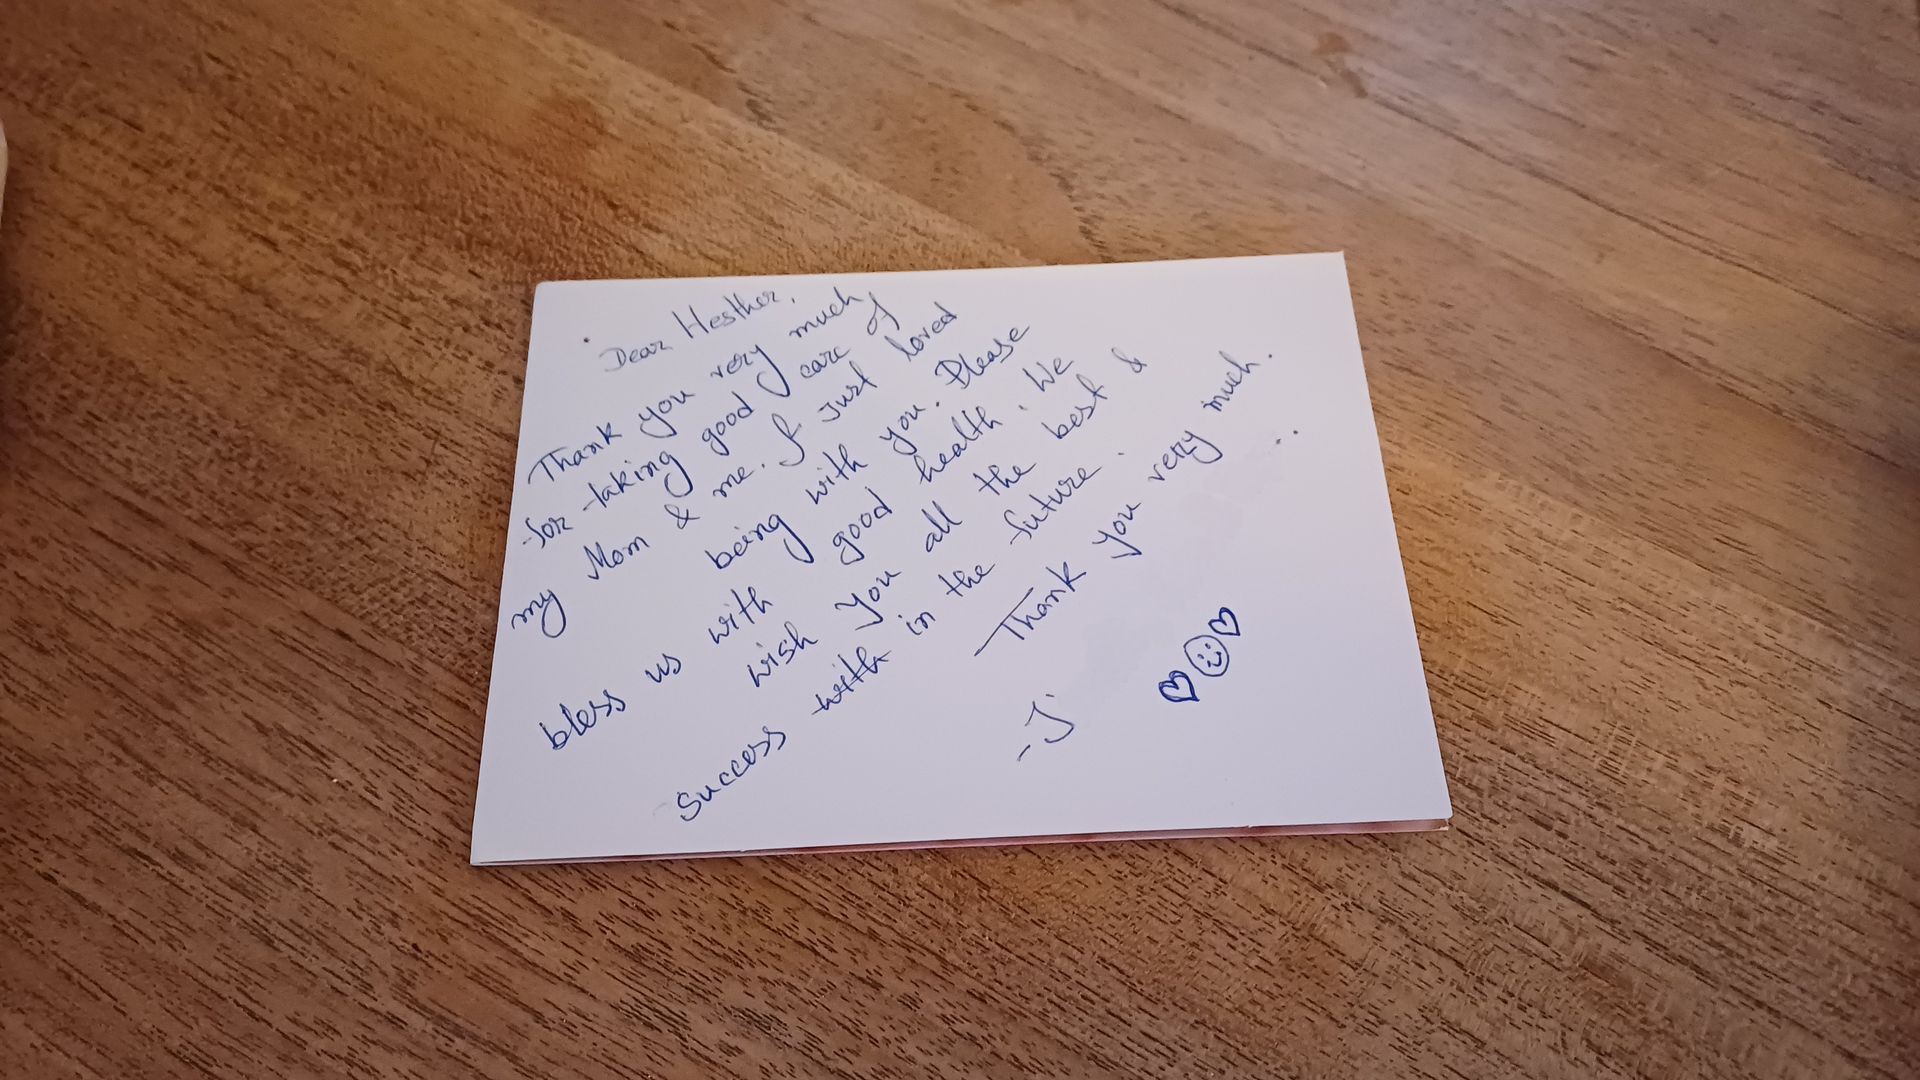 Dear Hesther,
Thank you very much
for taking good care of
my Mom & me. I just loved
being with you. Please
bless us with good health. We
wish you all the best &
success with in the future.
Thank you very much.
..
-J